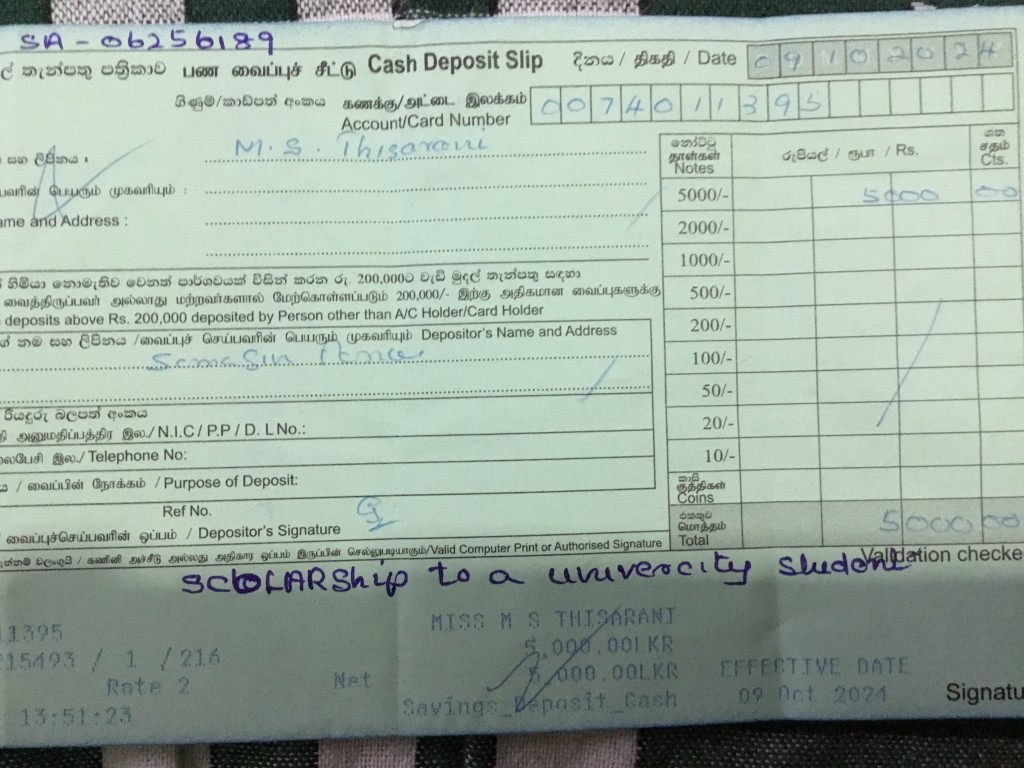 SA - 06256189
ල් තැන්පතු පත්‍රිකාව பண வைப்புச் சீட்டு Cash Deposit Slip දිනය / திகதி / Date 09102024
ගිණුම්/කාඩ්පත් අංකය கணக்கு/அட்டை இலக்கம் 0074011395
Account/Card Number
සහ ලිපිනය : M. S. Thisarani
பெயரும் முகவரியும் :
ame and Address :
නෝට්ටු தாள்கள் Notes රුපියල් / ரூபா / Rs. ශත சதம் Cts.
5000/- 5000 00
2000/-
1000/-
500/-
200/-
100/-
50/-
20/-
10/-
කාසි குத்திகள் Coins
එකතුව மொத்தம் Total 5000 00
හිමියා නොමැතිව වෙනත් පාර්ශවයක් විසින් කරන රු. 200,000ට වැඩි මුදල් තැන්පතු සඳහා
வைத்திருப்பவர் அல்லாது மற்றவர்களால் மேற்கொள்ளப்படும் 200,000/- இற்கு அதிகமான வைப்புகளுக்கு
deposits above Rs. 200,000 deposited by Person other than A/C Holder/Card Holder
නම සහ ලිපිනය /வைப்புச் செய்பவரின் பெயரும் முகவரியும் Depositor's Name and Address
රියදුරු බලපත් අංකය
அனுமதிப்பத்திர இல./ N.I.C / P.P / D. L No.:
இல./ Telephone No:
/ வைப்பின் நோக்கம் / Purpose of Deposit:
Ref No.
வைப்புச்செய்பவரின் ஒப்பம் / Depositor's Signature
வலංගුයි / கணினி அச்சீடு அல்லது அதிகார ஒப்பம் இருப்பின் செல்லுபடியாகும்/Valid Computer Print or Authorised Signature
Validation checke
SCOLARShip to a univercity student
11395 MISS M S THISARANI
215493 / 1 / 216 5,000.00LKR
Rate 2 Net 5,000.00LKR EFFECTIVE DATE
13:51:23 Savings_Deposit_Cash 09 Oct 2024 Signatu